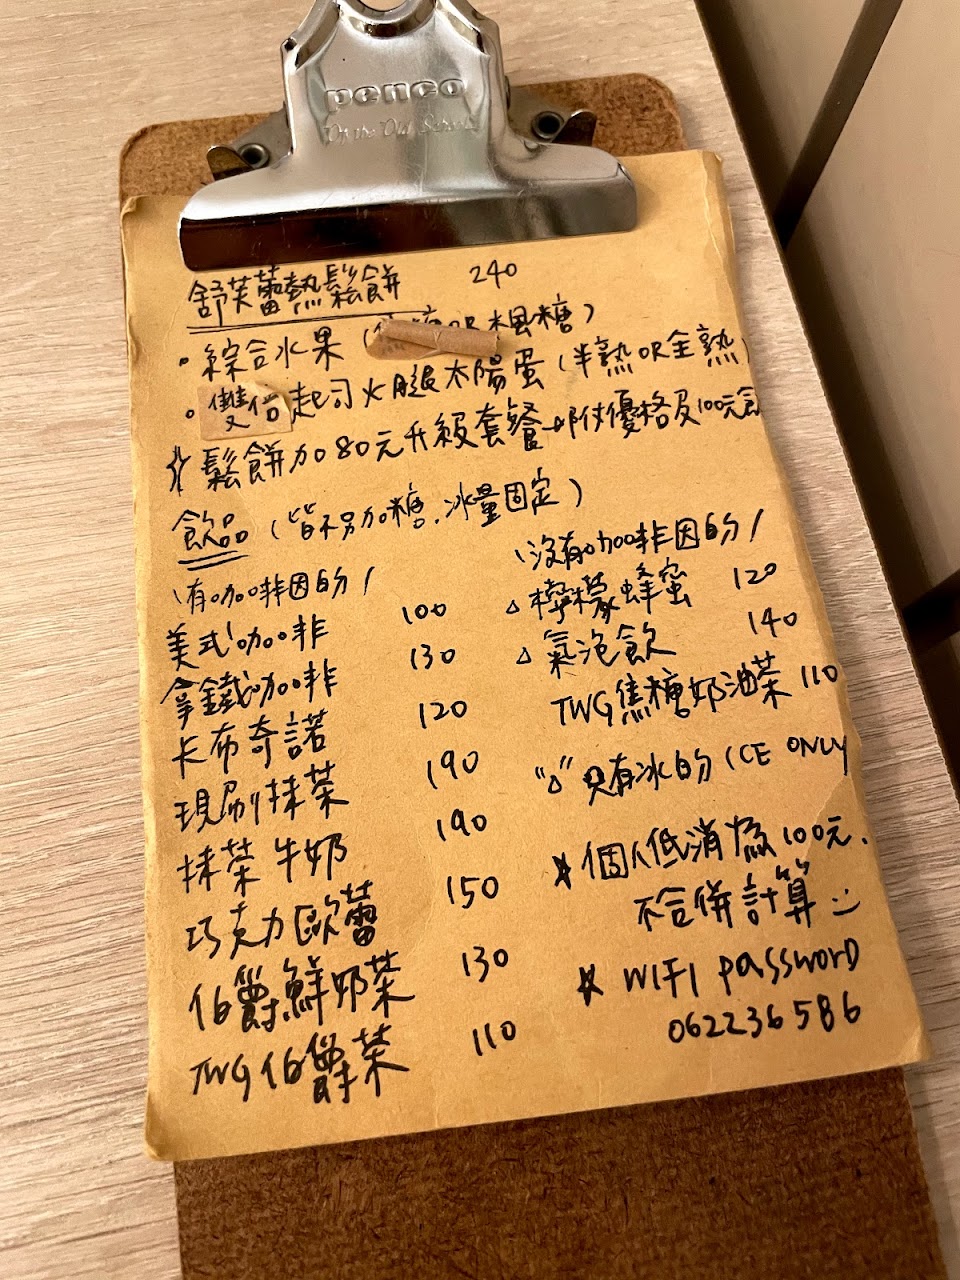 penco
舒芙蕾熱鬆餅 240
• 綜合水果 ( OR 楓糖)
• 雙倍起司火腿太陽蛋 (半熟OR全熟)
☆鬆餅加80元升級套餐 附優格及100元
飲品 (皆不另加糖.冰量固定)
\有咖啡因的/
美式咖啡 100
拿鐵咖啡 130
卡布奇諾 120
現刷抹茶 190
抹茶牛奶 190
巧克力歐蕾 150
伯爵鮮奶茶 130
TWG伯爵茶 110
\沒有咖啡因的/
△檸檬蜂蜜 120
△氣泡飲 140
TWG焦糖奶油茶 110
"△"只有冰的 (ICE ONLY
★個人低消為100元.
不合併計算
★WIFI password
062236586